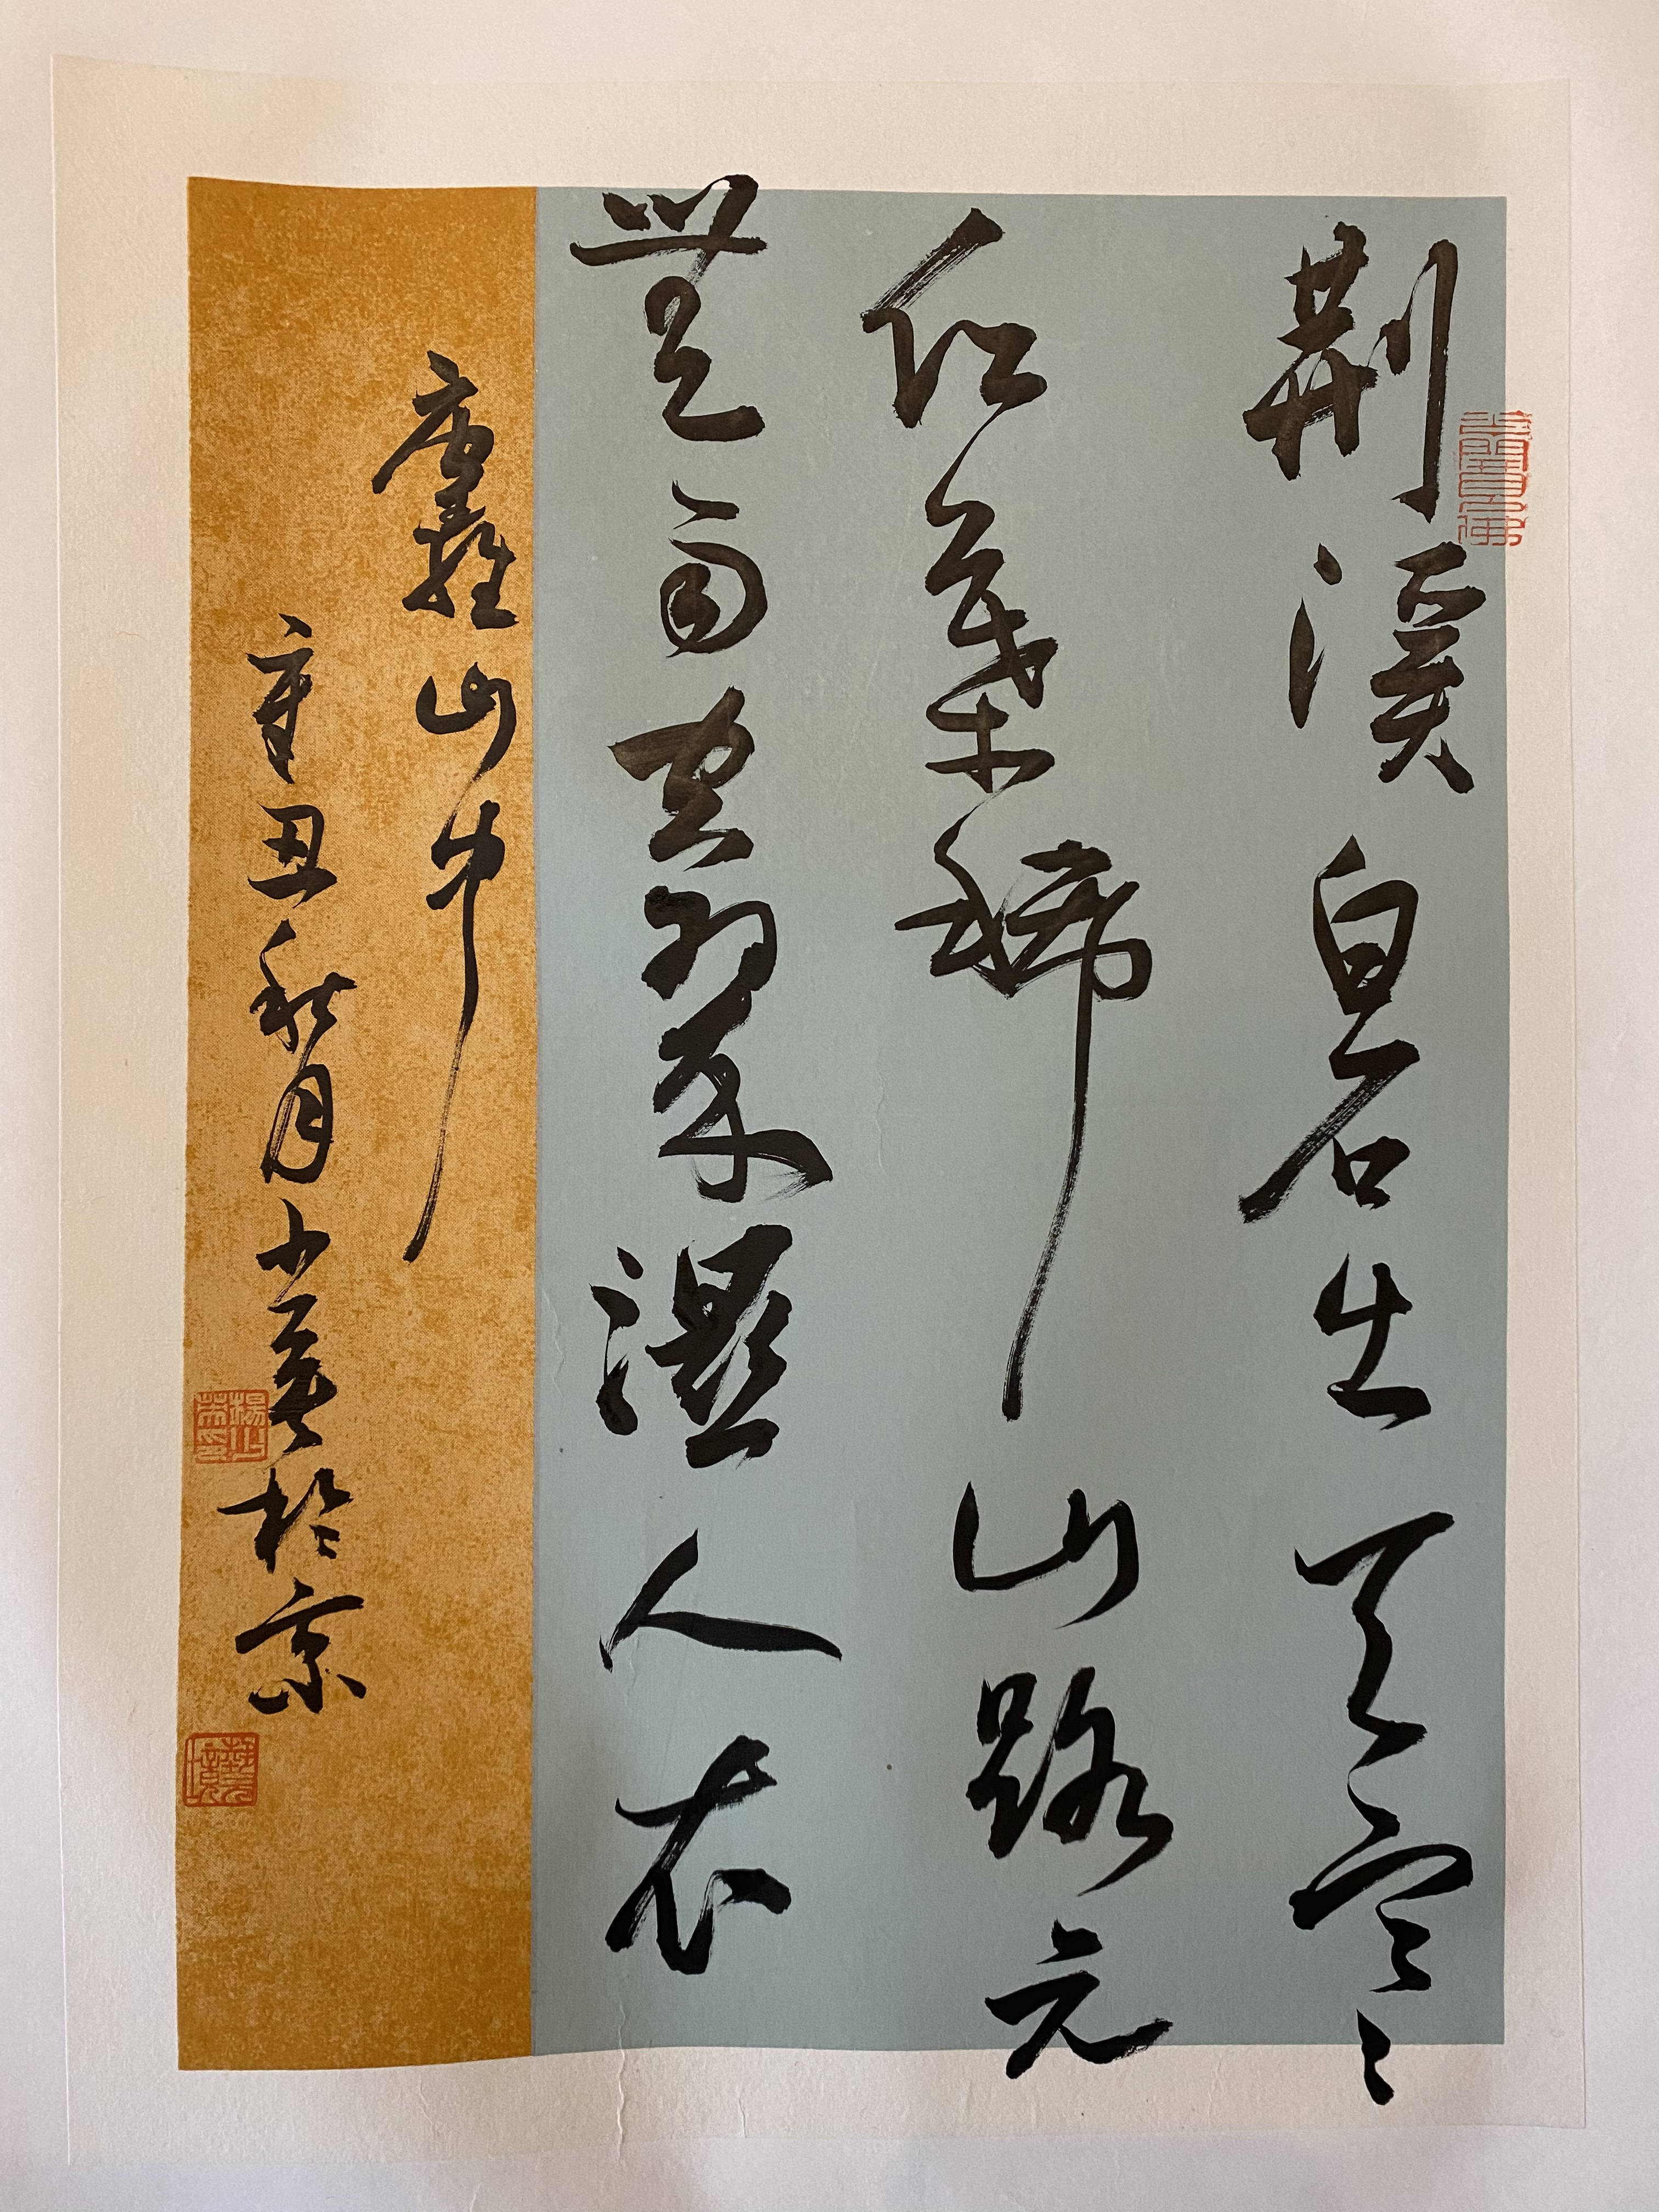 荆溪白石出天寒
紅葉稀山路元
無雨空翠濕人衣
唐王維山中
辛丑秋月少英於京